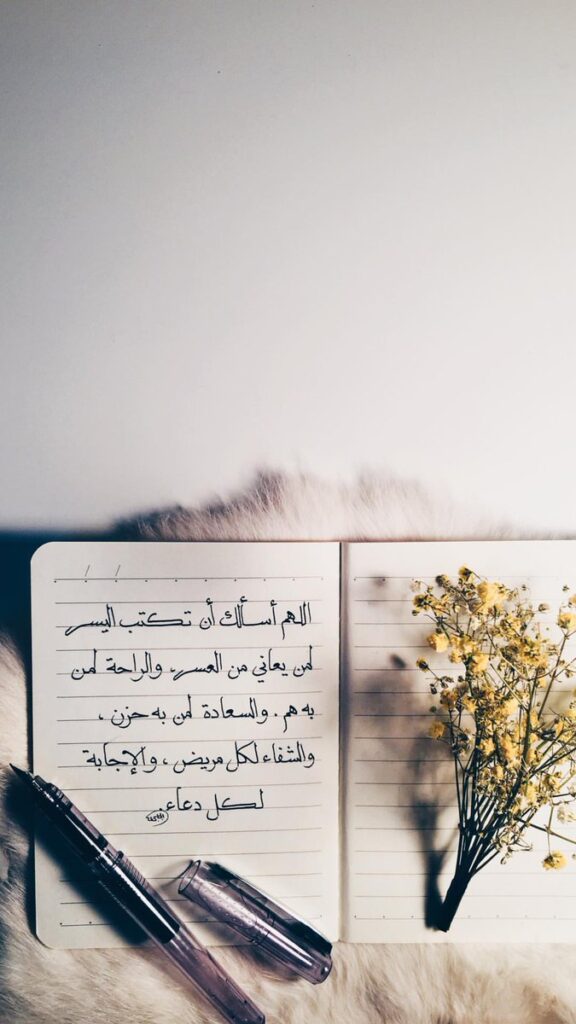 اللهم أسألك أن تكتب اليسر
لمن يعاني من العسر، والراحة لمن
به هم. والسعادة لمن به حزن،
والشفاء لكل مريض، والإجابة
لكل دعاء.